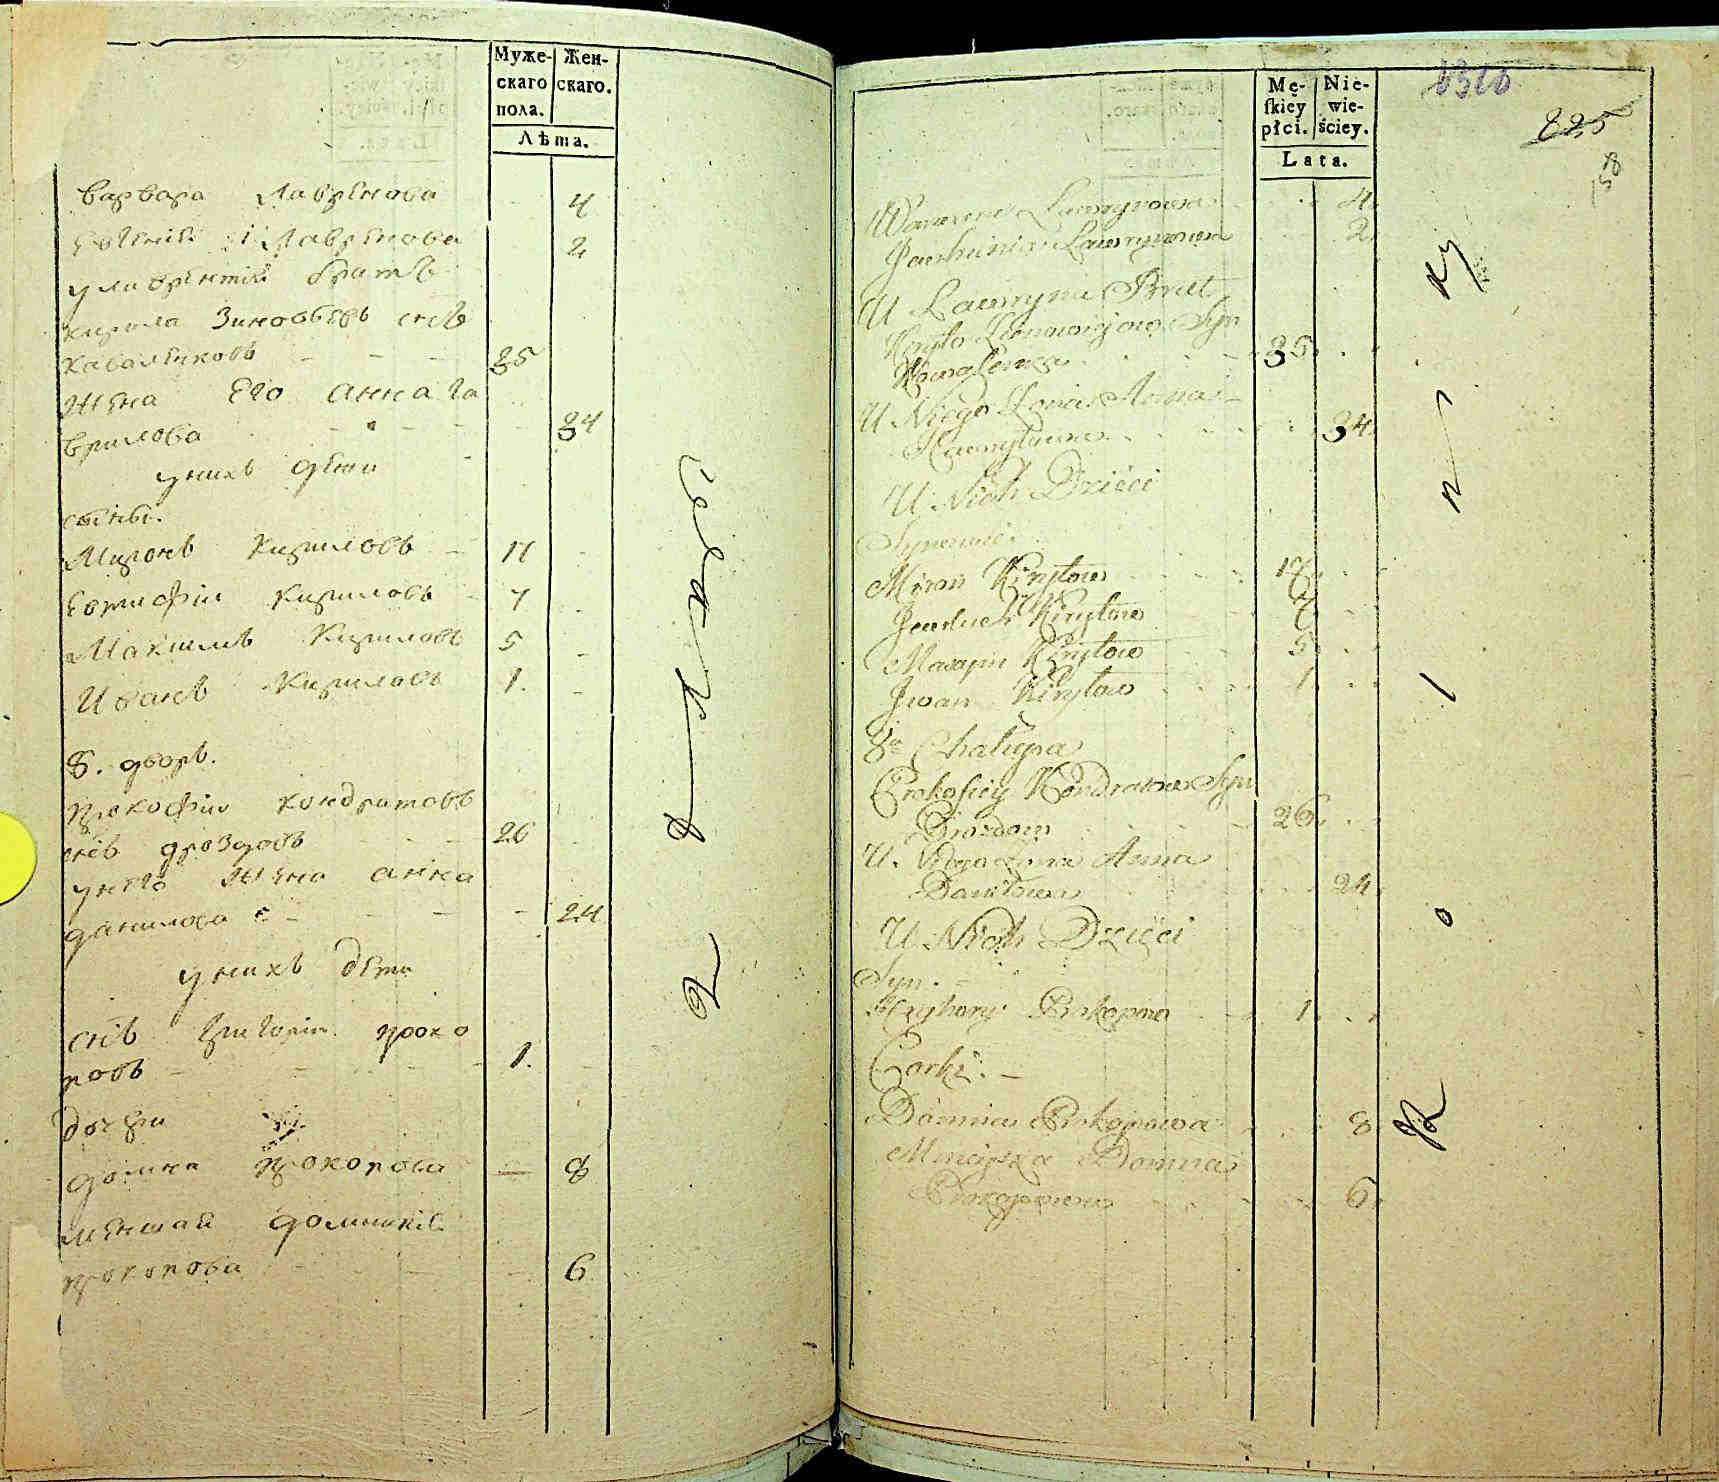 Муже-
скаго
пола.
Жен-
скаго.
Лѣта.
Варвара Лавренова 4
Евгенія Лавренова 2
у лаврентія братъ
кирила Зиновьевъ снъ
коваленковъ 35
Жена Его анна га
врилова 34
унихъ дети
сыны.
Миронъ Кириловъ 17
Евтифій Кириловъ 7
Максимъ Кириловъ 5
Иванъ Кириловъ 1.
8. дворъ.
прокофій кондратовъ
снъ дроздовъ 26
унего жена анна
данилова 24
унихъ дети
снъ григорій проко
повъ 1.
дочери
домна прокопова 8
меншая
прокопова 6
Селакъ
Mę-
skiey
płci.
Nie-
wie-
ściey.
Lata.
225
Ławrynowa 4
Ławrynowa 2
U Ławryna Brat
Kiryło Syn
Kowalenka 35
U Niego Żona Anna
Hawryłowa 34
U Nich Dzieci
Synowie.
Miron Kiryłow 17
Kiryłow 7
Maxym Kiryłow 5
Jwan Kiryłow 1
8a Chałupa
Prokofiey Kondratow Syn
Drozdow 26
U Niego Żona Anna
Daniłowa 24
U Nich Dzieci
Syn.
Hryhory Prokopow 1
Corki.
Domna Prokopowa 8
Mnieysza Domna
Prokopowa 6